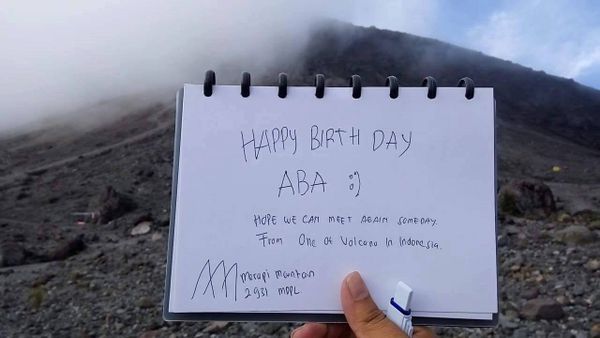 HAPPY BIRTH DAY
ABA :)
HOPE WE CAN MEET AGAIN SOMEDAY.
From One of Volcano In Indonesia.
merapi mountain
2931 MDPL